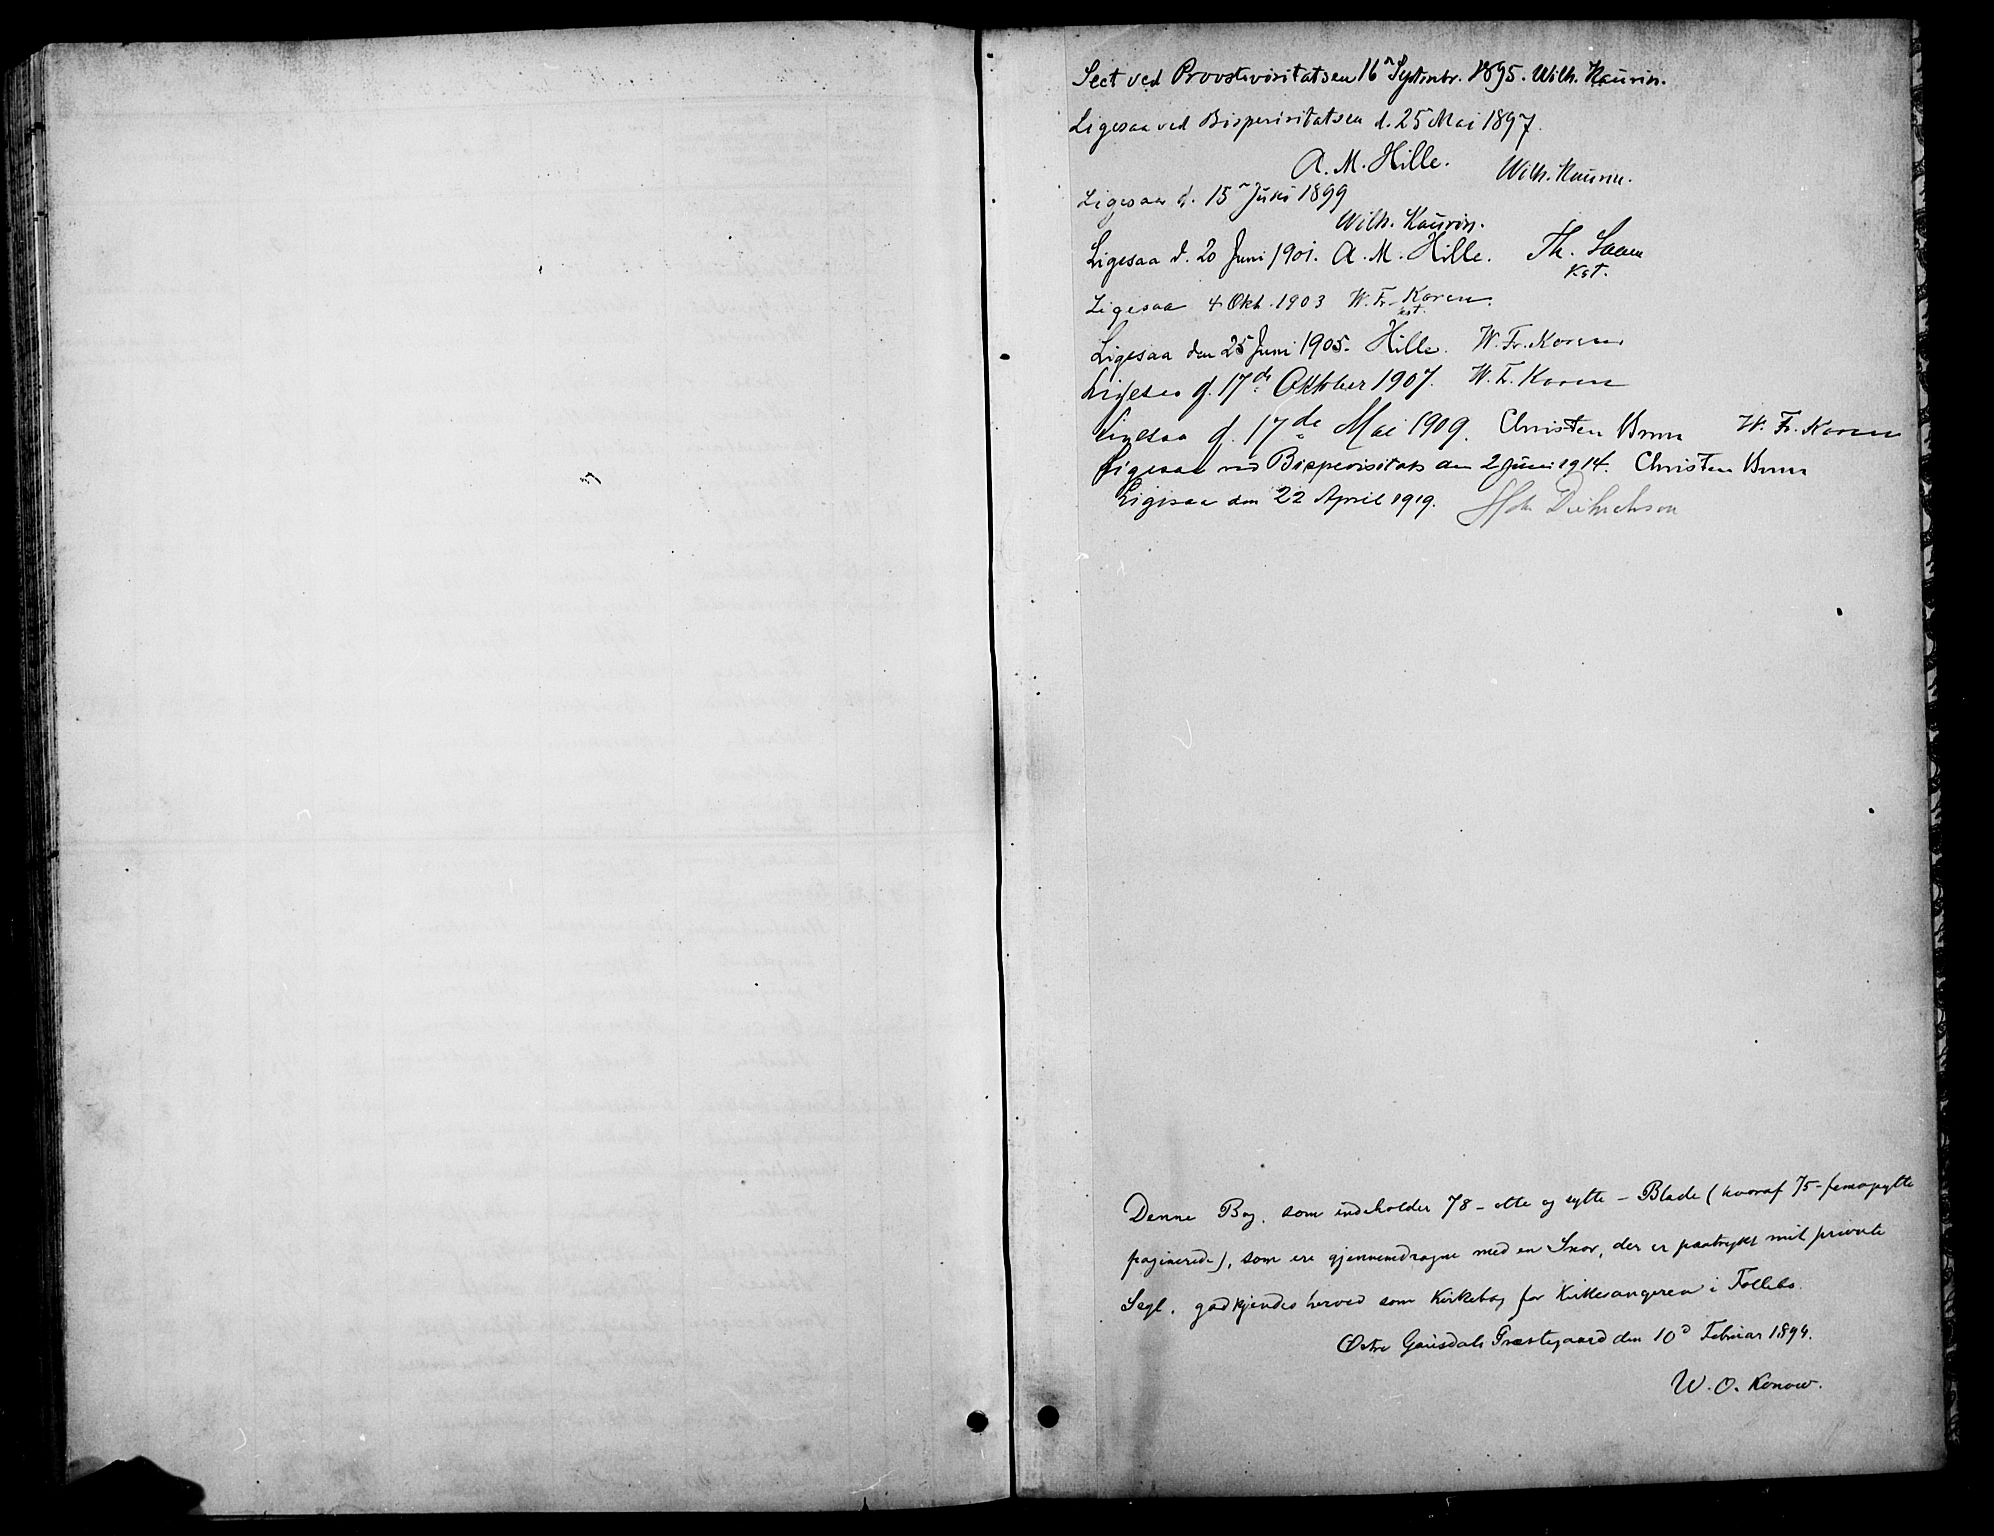 Seet ved Provstevisitatsen 16 Septembr. 1895. Wilh. Kaurin.
Ligesaa ved Bispevisitatsen d. 25 Mai 1897.
A. M. Hille. Wilh. Kaurin.
Ligesaa d. 15 Juni 1899
Wilh. Kaurin.
Ligesaa d. 20 Juni 1901. A. M. Hille. Th.
Kst.
Ligesaa 4 Okt. 1903 W. Fr. Koren.
kst.
Ligesaa den 25 Juni 1905. Hille. W. Fr. Koren
Ligesaa d. 17de Oktober 1907. W. F. Koren
Ligesaa d. 17de Mai 1909. Christen Brun W. Fr. Koren
Ligesaa ved Bispevisitats den 2 Juni 1914. Christen Brun
Ligesaa den 22 April 1919. Dietrichson
Denne Bog, som indeholder 78 - otte og sytte - Blade (hvoraf 75 - femogsytte
paginerede), som ere gjennemdragne med en Snor, der er paatrykt mit private
Segl, godkjendes herved som Kirkebog for Kirkesangeren i Follebo.
Østre Gausdals Præstegaard den 10d Februar 1894.
W. O. Konow.